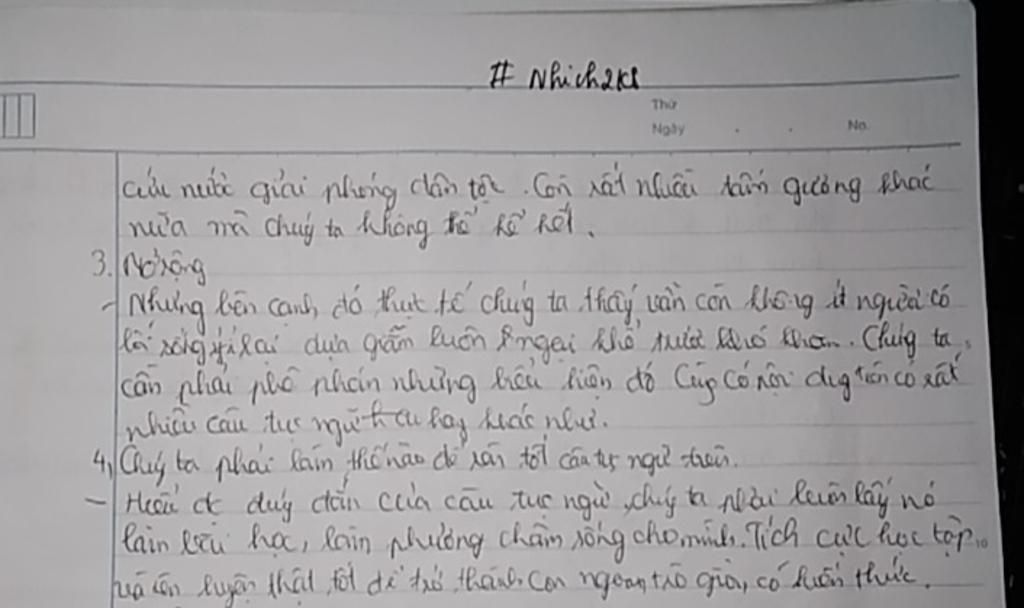 # Nhich2k8
Thứ
Ngày No.
cứu nước giải phóng dân tộc. Còn rất nhiều tấm gương khác
nữa mà chúng ta không thể kể hết.
3. Mở rộng
- Nhưng bên cạnh đó thực tế chúng ta thấy vẫn còn không ít người có
lối sống ỷ lại dựa giẫm luôn ngại khó trước khó khăn. Chúng ta
cần phải phê phán những biểu hiện đó Cũng có nội dung trên có rất
nhiều câu tục ngữ hay khác như.
4, Chúng ta phải làm thế nào để tốt câu tục ngữ trên.
- Hiểu đc đúng đắn của câu tục ngữ, chúng ta phải luôn lấy nó
làm bài học, làm phương châm sống cho mình. Tích cực học tập
và rèn luyện thật tốt để trở thành con ngoan, trò giỏi, có kiến thức.